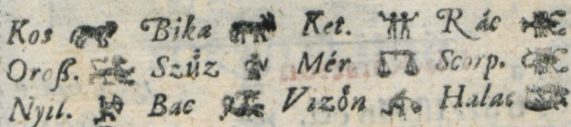 Kos Bika Ket. Rác
Oroß. Szűz Mér Scorp.
Nyil. Bac Vizőn Halac